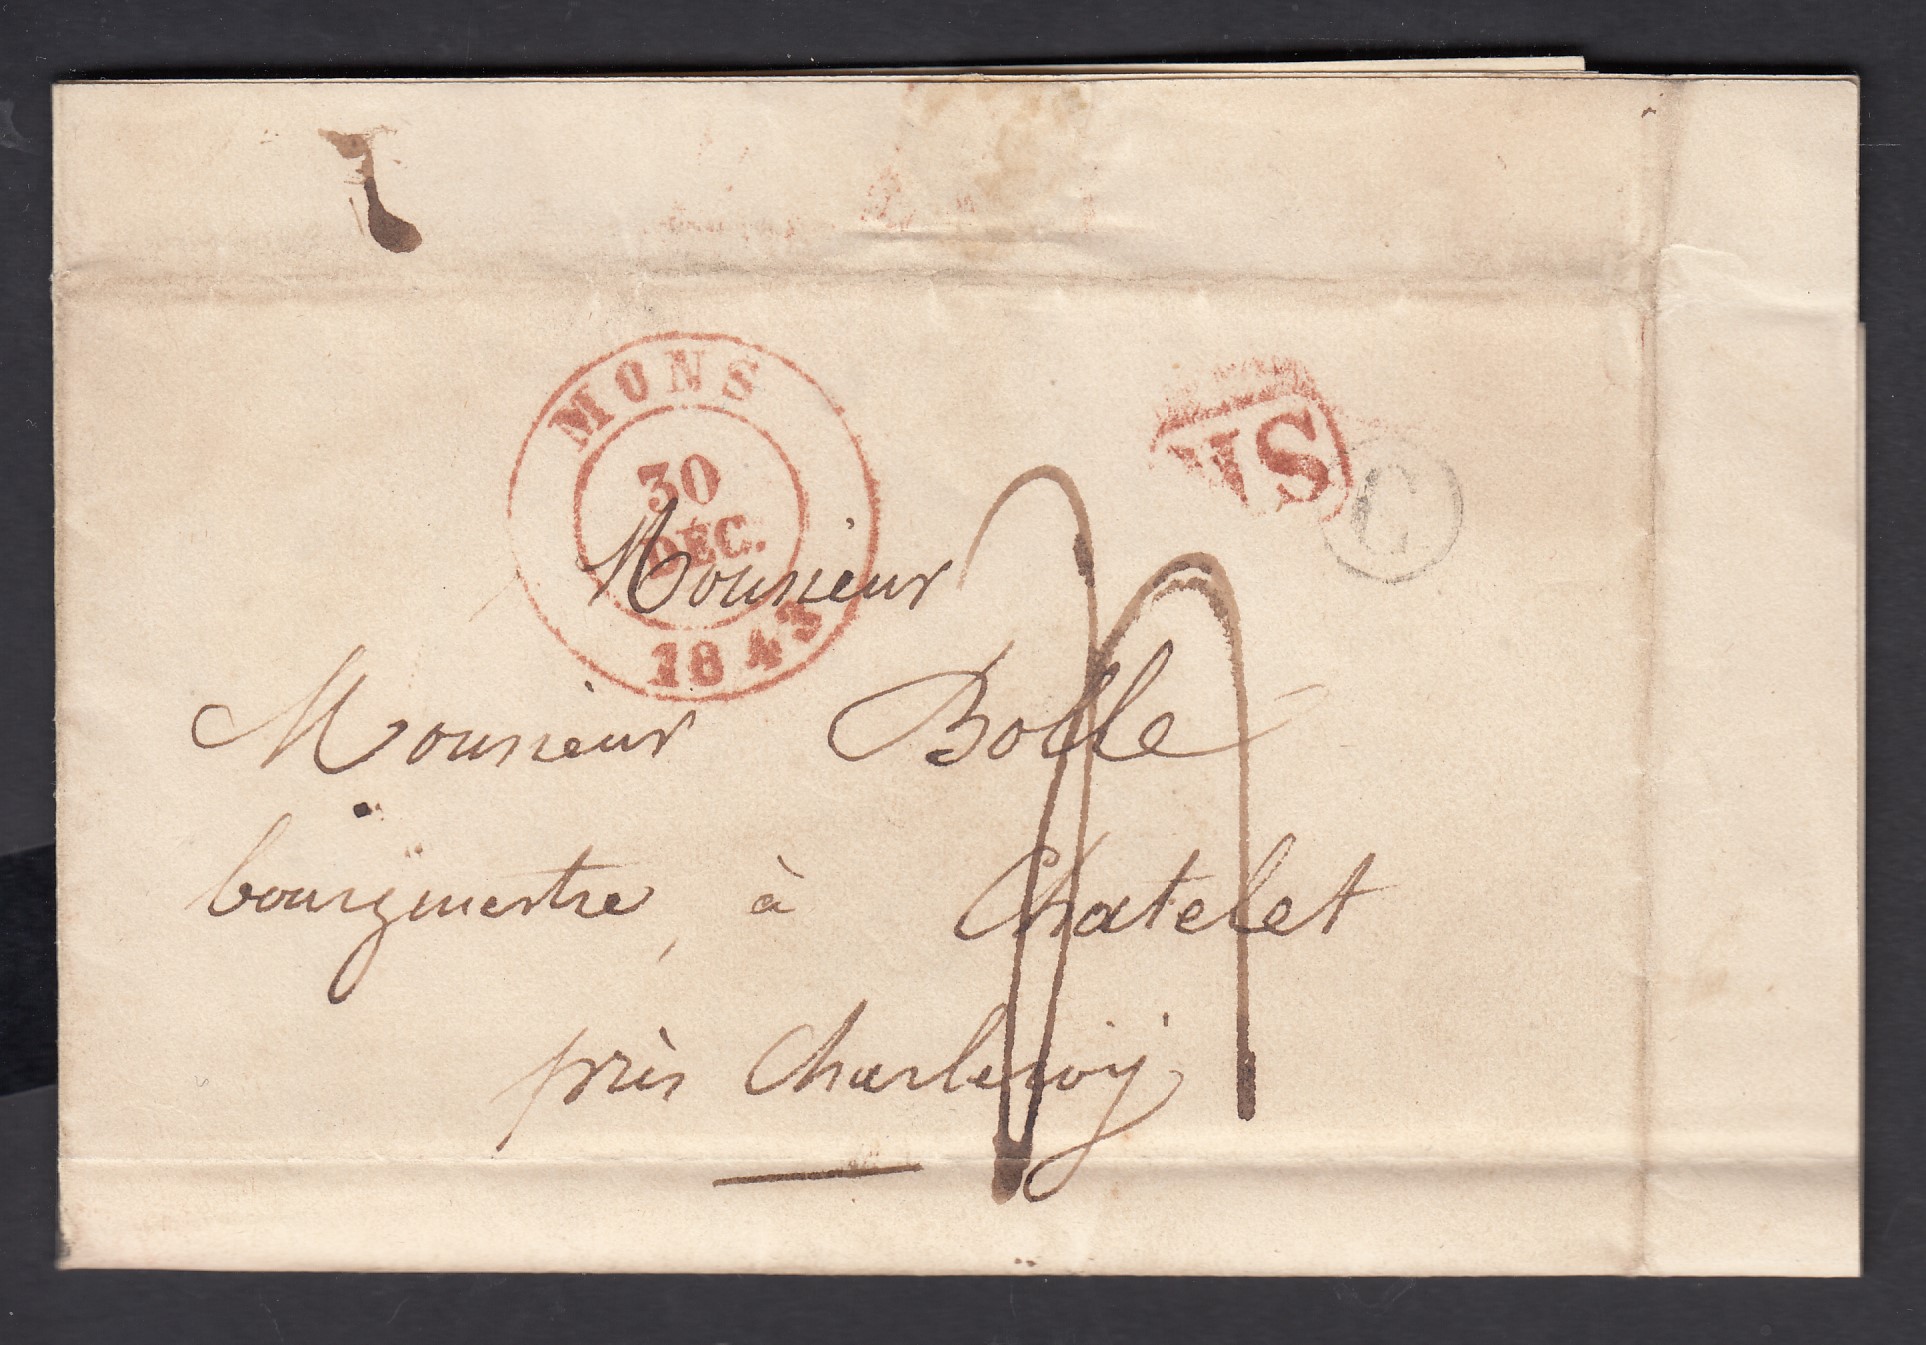 MONS
30
DÉC.
1843
NS
C
Monsieur
Monsieur Bolle
bourgmestre, à Chatelet
près Charleroij